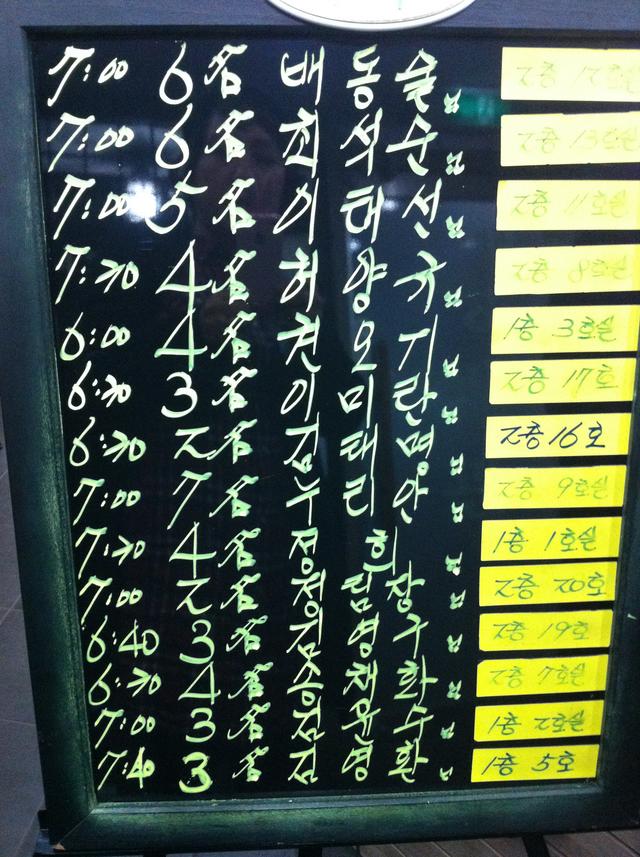 7:00 6名 배동술님 2층 12호실
7:00 6名 최석순님 2층 13호실
7:00 5名 이태선님 2층 11호실
7:30 4名 허양규님 2층 8호실
6:00 4名 천오기님 1층 3호실
6:30 3名 이미란님 2층 17호
6:30 2名 김태명님 2층 16호
7:00 7名 누리안님 2층 9호실
7:30 4名 정희님 1층 1호실
7:00 2名 정림장님 2층 20호
6:40 3名 김영구님 2층 19호
6:30 4名 승채화님 2층 7호실
7:00 3名 점윤수님 1층 2호실
7:40 3名 김영환님 1층 5호